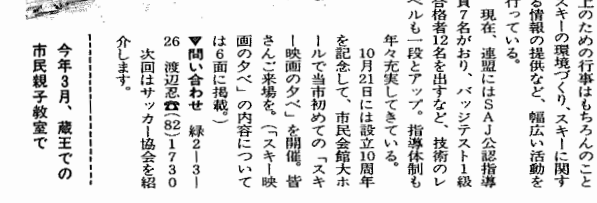 上のための行事はもちろんのこと
スキーの環境づくり、スキーに関す
る情報の提供など、幅広い活動を
行っている。
現在、連盟にはSAJ公認指導
員7名がおり、バッジテスト1級
合格者12名を出すなど、技術のレ
ベルも一段とアップ。指導体制も
年々充実してきている。
10月21日には設立10周年
を記念して、市民会館大ホ
ールで当市初めての「スキ
ー映画の夕べ」を開催。皆
さんご来場を。(「スキー映
画の夕べ」の内容について
は6面に掲載。)
▼問い合わせ 緑2ー3ー
26 渡辺忍☎(82)1730
次回はサッカー協会を紹
介します。
今年3月、蔵王での
市民親子教室で